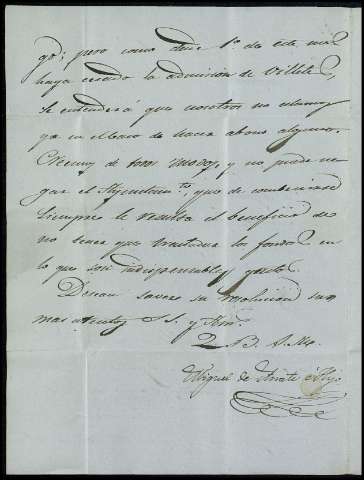 go; pero como desde 1º de este mes
haya cesado la admision de Villetes,
se entenderá que nosotros no estamos
ya en el caso de hacer abono alguno.
Creemos de todos modos, y no puede ne
gar el Ayuntam.to, que de combenirse
siempre le resulta el beneficio de
no tener que trasladar los fondos en
lo que son indispensables gastos.
Desean saver su resolucion sus
mas atentos S. S. y Am.s
Q. B. S. M.
Miguel de é Hijo